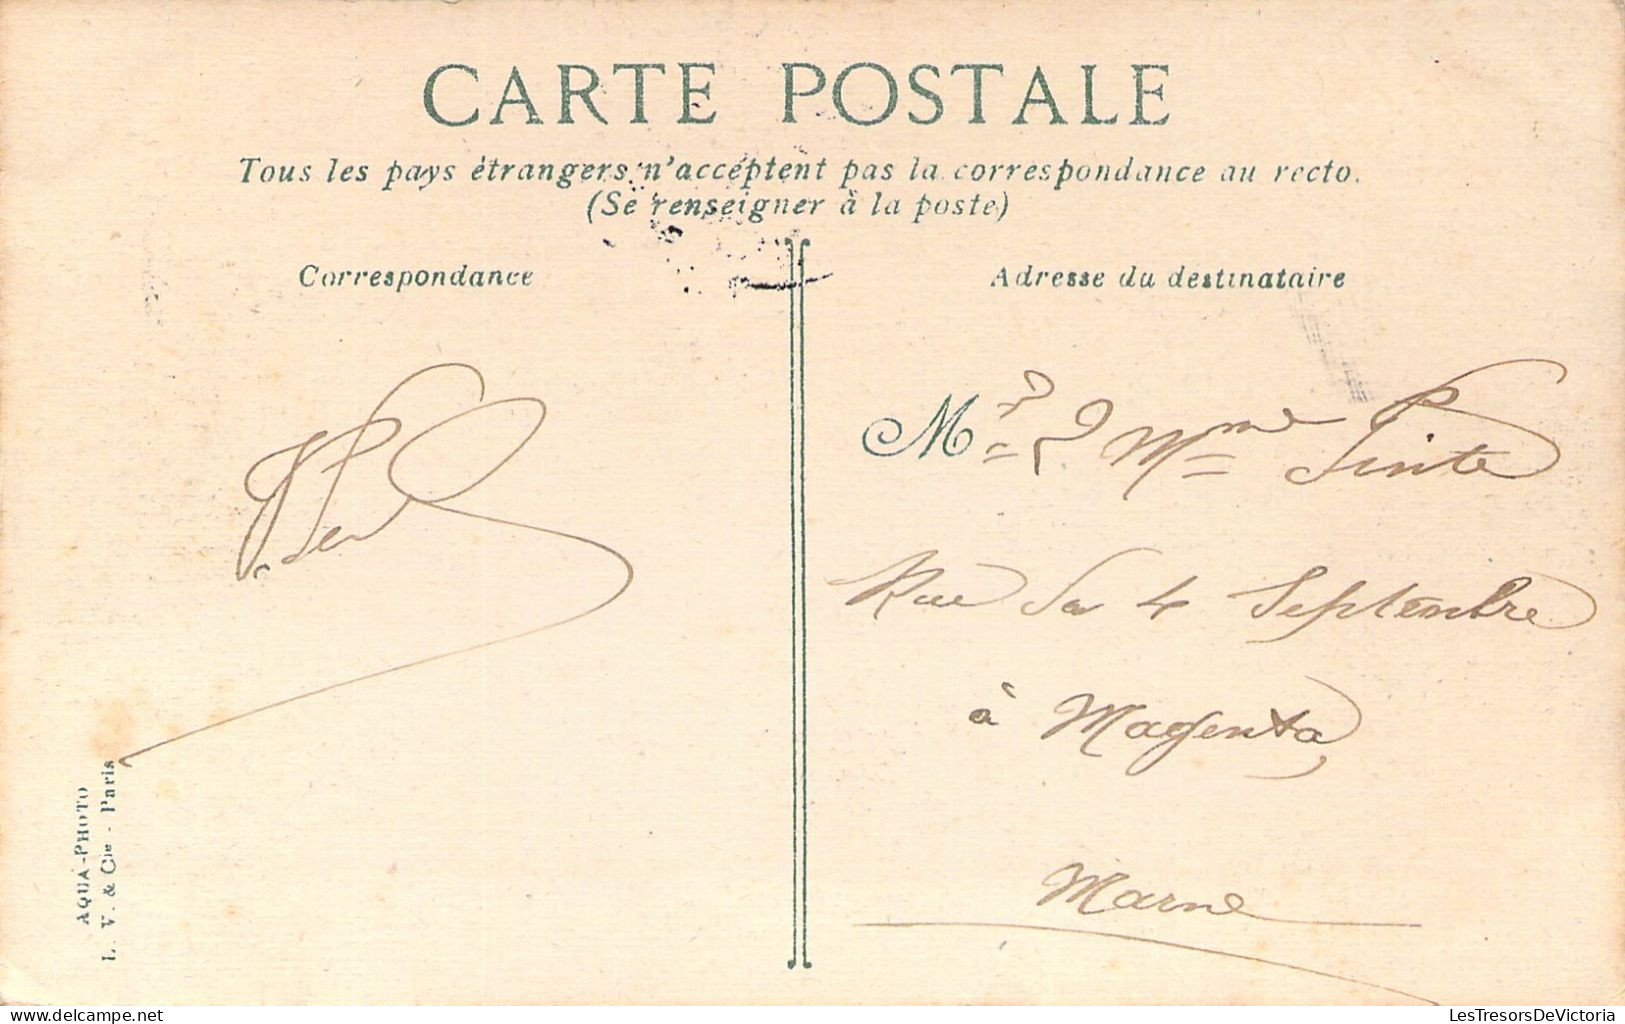 CARTE POSTALE
Tous les pays étrangers n'acceptent pas la correspondance au recto.
(Se renseigner à la poste)
Correspondance
Adresse du destinataire
Mr & Mme Pinte
Rue du 4 Septembre
à Magenta
Marne
AQUA-PHOTO
L. V. & Cie - Paris
LesTresorsDeVictoria